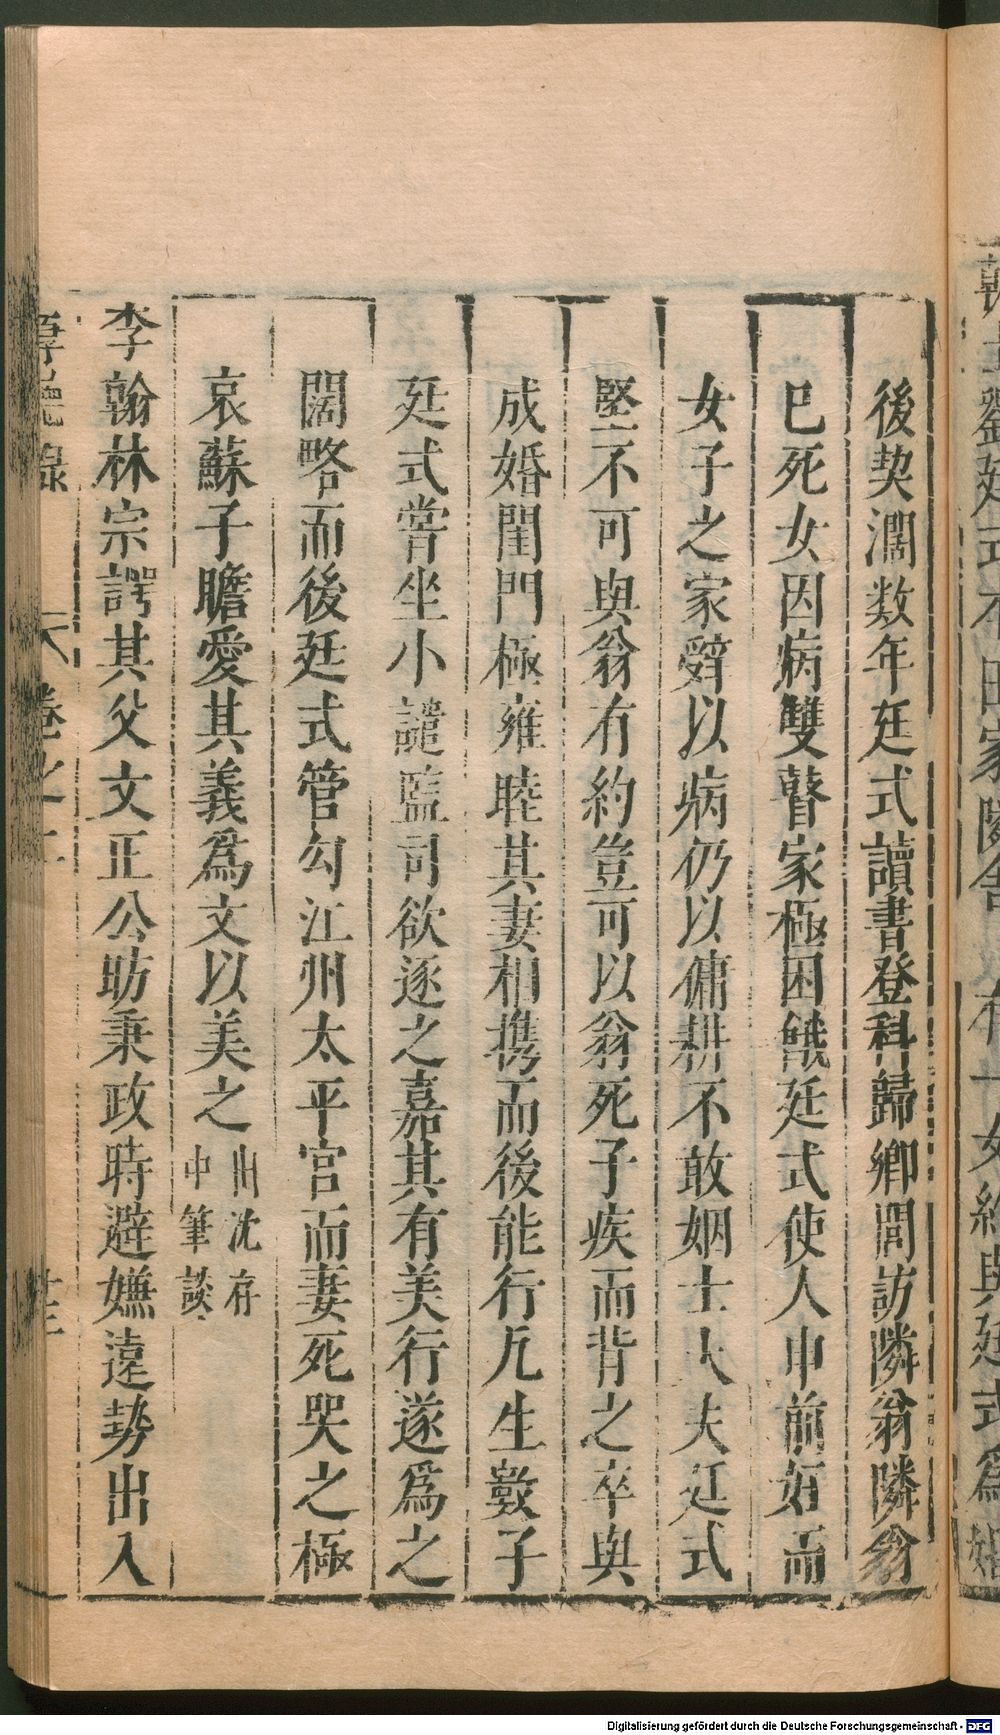 後契濶数年廷式讀書登科歸鄉閭訪隣翁隣翁
已死女因病雙瞽家極困餓廷式使人申前好而
女子之家辭以病仍以傭耕不敢姻士大夫廷式
堅不可與翁有約豈可以翁死子疾而背之卒與
成婚閨門極雍睦其妻相携而後能行凢生數子
廷式嘗坐小譴監司欲逐之嘉其有美行遂爲之
闊略而後廷式管勾江州太平宮而妻死哭之極
哀蘇子瞻愛其義爲文以美之
出沈存
中筆談
李翰林宗諤其父文正公昉秉政時避嫌遠勢出入
卷之二
Digitalisierung gefördert durch die Deutsche Forschungsgemeinschaft - DFG